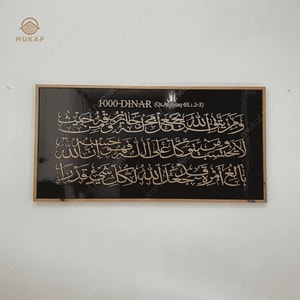 MUKAF
1000-DINAR
ومن يتق الله يجعل له مخرجا ويرزقه من حيث
لا يحتسب ومن يتوكل على الله فهو حسبه إن الله
بالغ أمره قد جعل الله لكل شيء قدرا